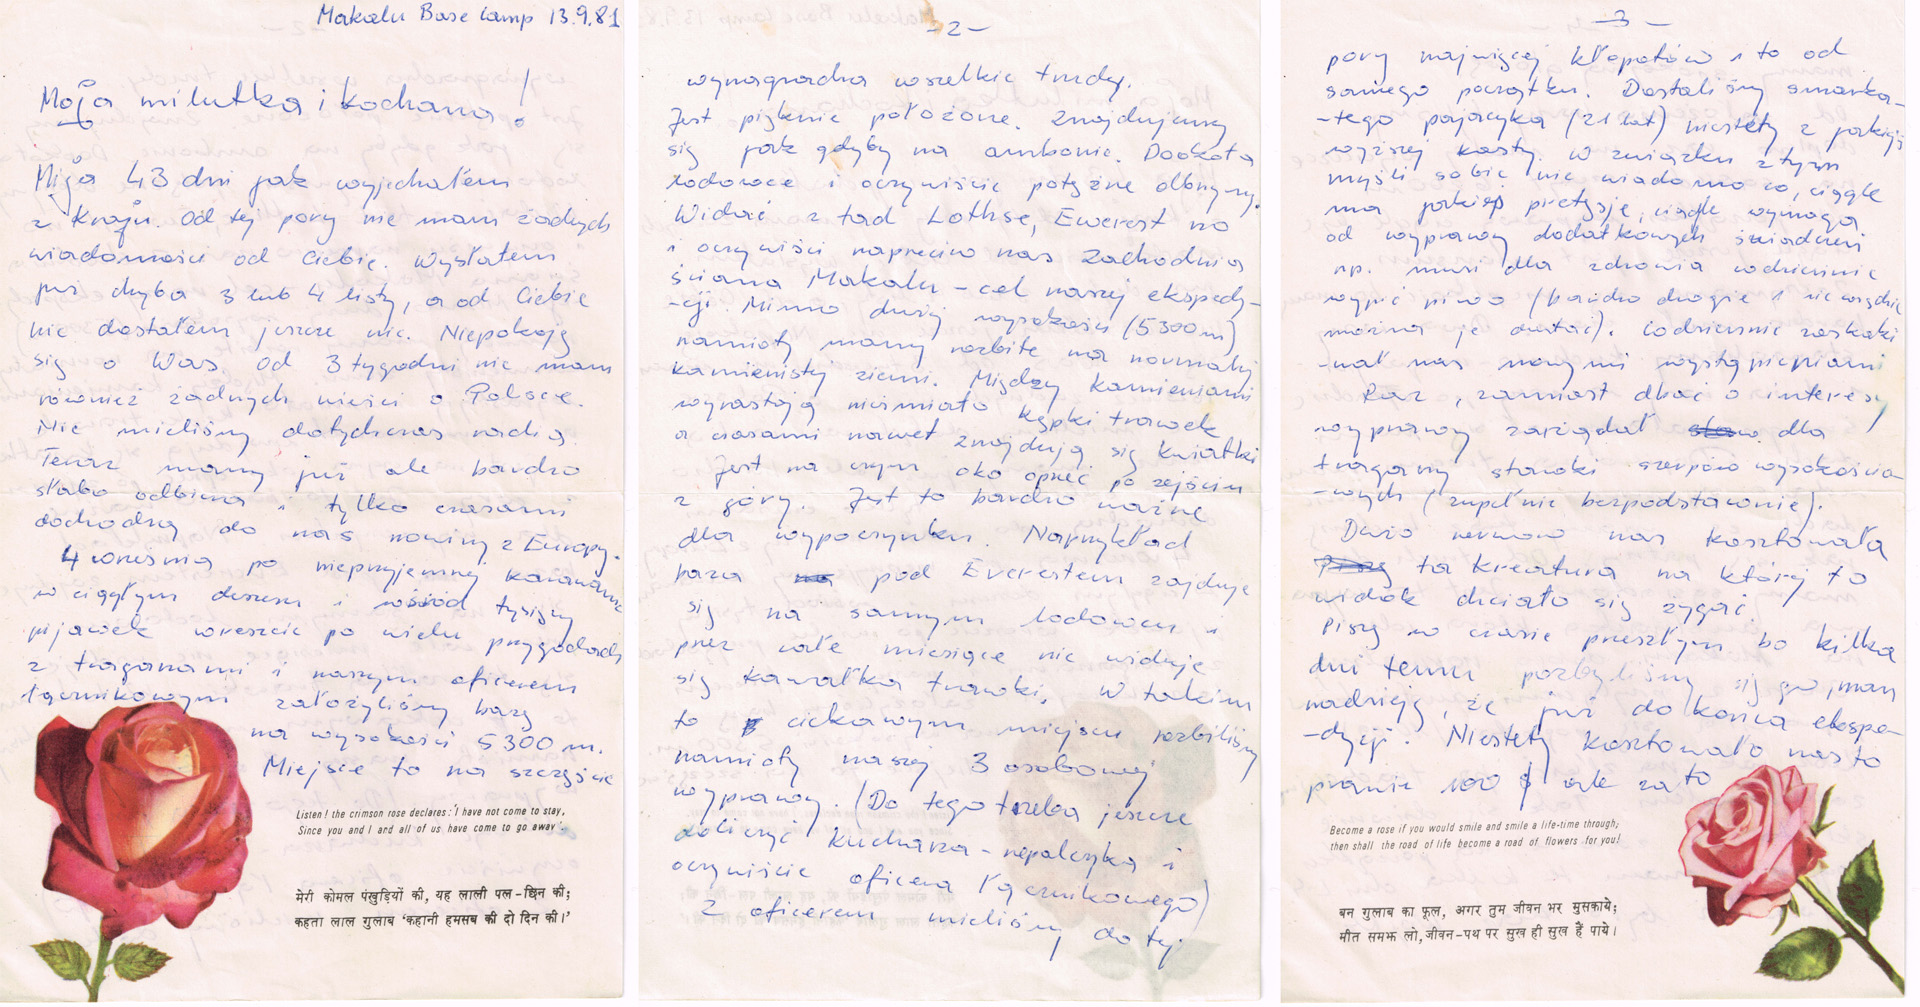 Makalu Base Camp 13.9.81
Moja milutka i kochana!
Mija 43 dni jak wyjechałem
z Kraju. Od tej pory nie mam żadnych
wiadomości od Ciebie. Wysłałem
już chyba 3 lub 4 listy, a od Ciebie
nie dostałem jeszcze nic. Niepokoję
się o Was. Od 3 tygodni nie mam
również żadnych wieści o Polsce.
Nie mieliśmy dotychczas radia.
Teraz mamy już ale bardzo
słabo odbiera i tylko czasami
dochodzą do nas nowiny z Europy.
4 września po nieprzyjemnej karawanie
w ciągłym deszczu i wśród tysięcy
pijawek wreszcie po wielu przygodach
z tragarzami i naszym oficerem
łącznikowym założyliśmy bazę
na wysokości 5300 m.
Miejsce to na szczęście
Listen! the crimson rose declares: 'I have not come to stay,
Since you and I and all of us have come to go away'.
मेरी कोमल पंखुड़ियों की, यह लाली पल-छिन की;
कहता लाल गुलाब 'कहानी हमसब की दो दिन की।'
-2-
wynagradza wszelkie trudy.
Jest pięknie położone. Znajdujemy
się jak gdyby na ambonie. Dookoła
lodowce i oczywiście potężne olbrzymy.
Widać z tąd Lothse, Ewerest no
i oczywiści naprzeciw nas Zachodnia
ściana Makalu - cel naszej ekspedy-
-cji. Mimo dużej wysokości (5300 m)
namioty mamy rozbite na normalnej
kamienistej ziemi. Między kamieniami
wyrastają nieśmiało kępki trawek
a czasami nawet znajdują się kwiatki
Jest na czym oko oprzeć po zejściu
z góry. Jest to bardzo ważne
dla wypoczynku. Naprzykład
baza na pod Everestem zajduje
się na samym lodowcu i
przez całe miesiące nie widuje
się kawałka trawki. W takim
to ciekawym miejscu rozbiliśmy
namioty naszej 3 osobowej
wyprawy. (Do tego trzeba jeszcze
doliczyć kucharza - nepalczyka i
oczywiście oficera łącznikowego)
Z oficerem mieliśmy do tej
-3-
pory najwięcej kłopotów i to od
samego początku. Dostaliśmy smarka-
-tego pajacyka (21 lat) niestety z jakiejś
wyższej kasty. W związku z tym
myśli sobie nie wiadomo co, ciągle
ma jakieś pretęsje, ciągle wymaga
od wyprawy dodatkowych świadczeń
np. musi dla zdrowia codziennie
wypić piwo (bardzo drogie i nie wszędzie
można je dostać). Codziennie zaskaki
-wał nas nowymi wystąpieniami
Raz, zamiast dbać o interesy
wyprawy zarządał dla
tragarzy stawki szerpów wysokościo-
-wych (zupełnie bezpodstawnie).
Dużo nerwów nas kosztowała
Piszę ta kreatura na której to
widok chciało się żygać.
Piszę w czasie przeszłym bo kilka
dni temu pozbyliśmy się go, mam
nadzieję, że już do końca ekspe-
-dycji. Niestety kosztowało nas to
prawie 100 $ ale za to
Become a rose if you would smile and smile a life-time through;
then shall the road of life become a road of flowers for you!
बन गुलाब का फूल, अगर तुम जीवन भर मुसकाये;
मीत समझ लो, जीवन-पथ पर सुख ही सुख हैं पाये।